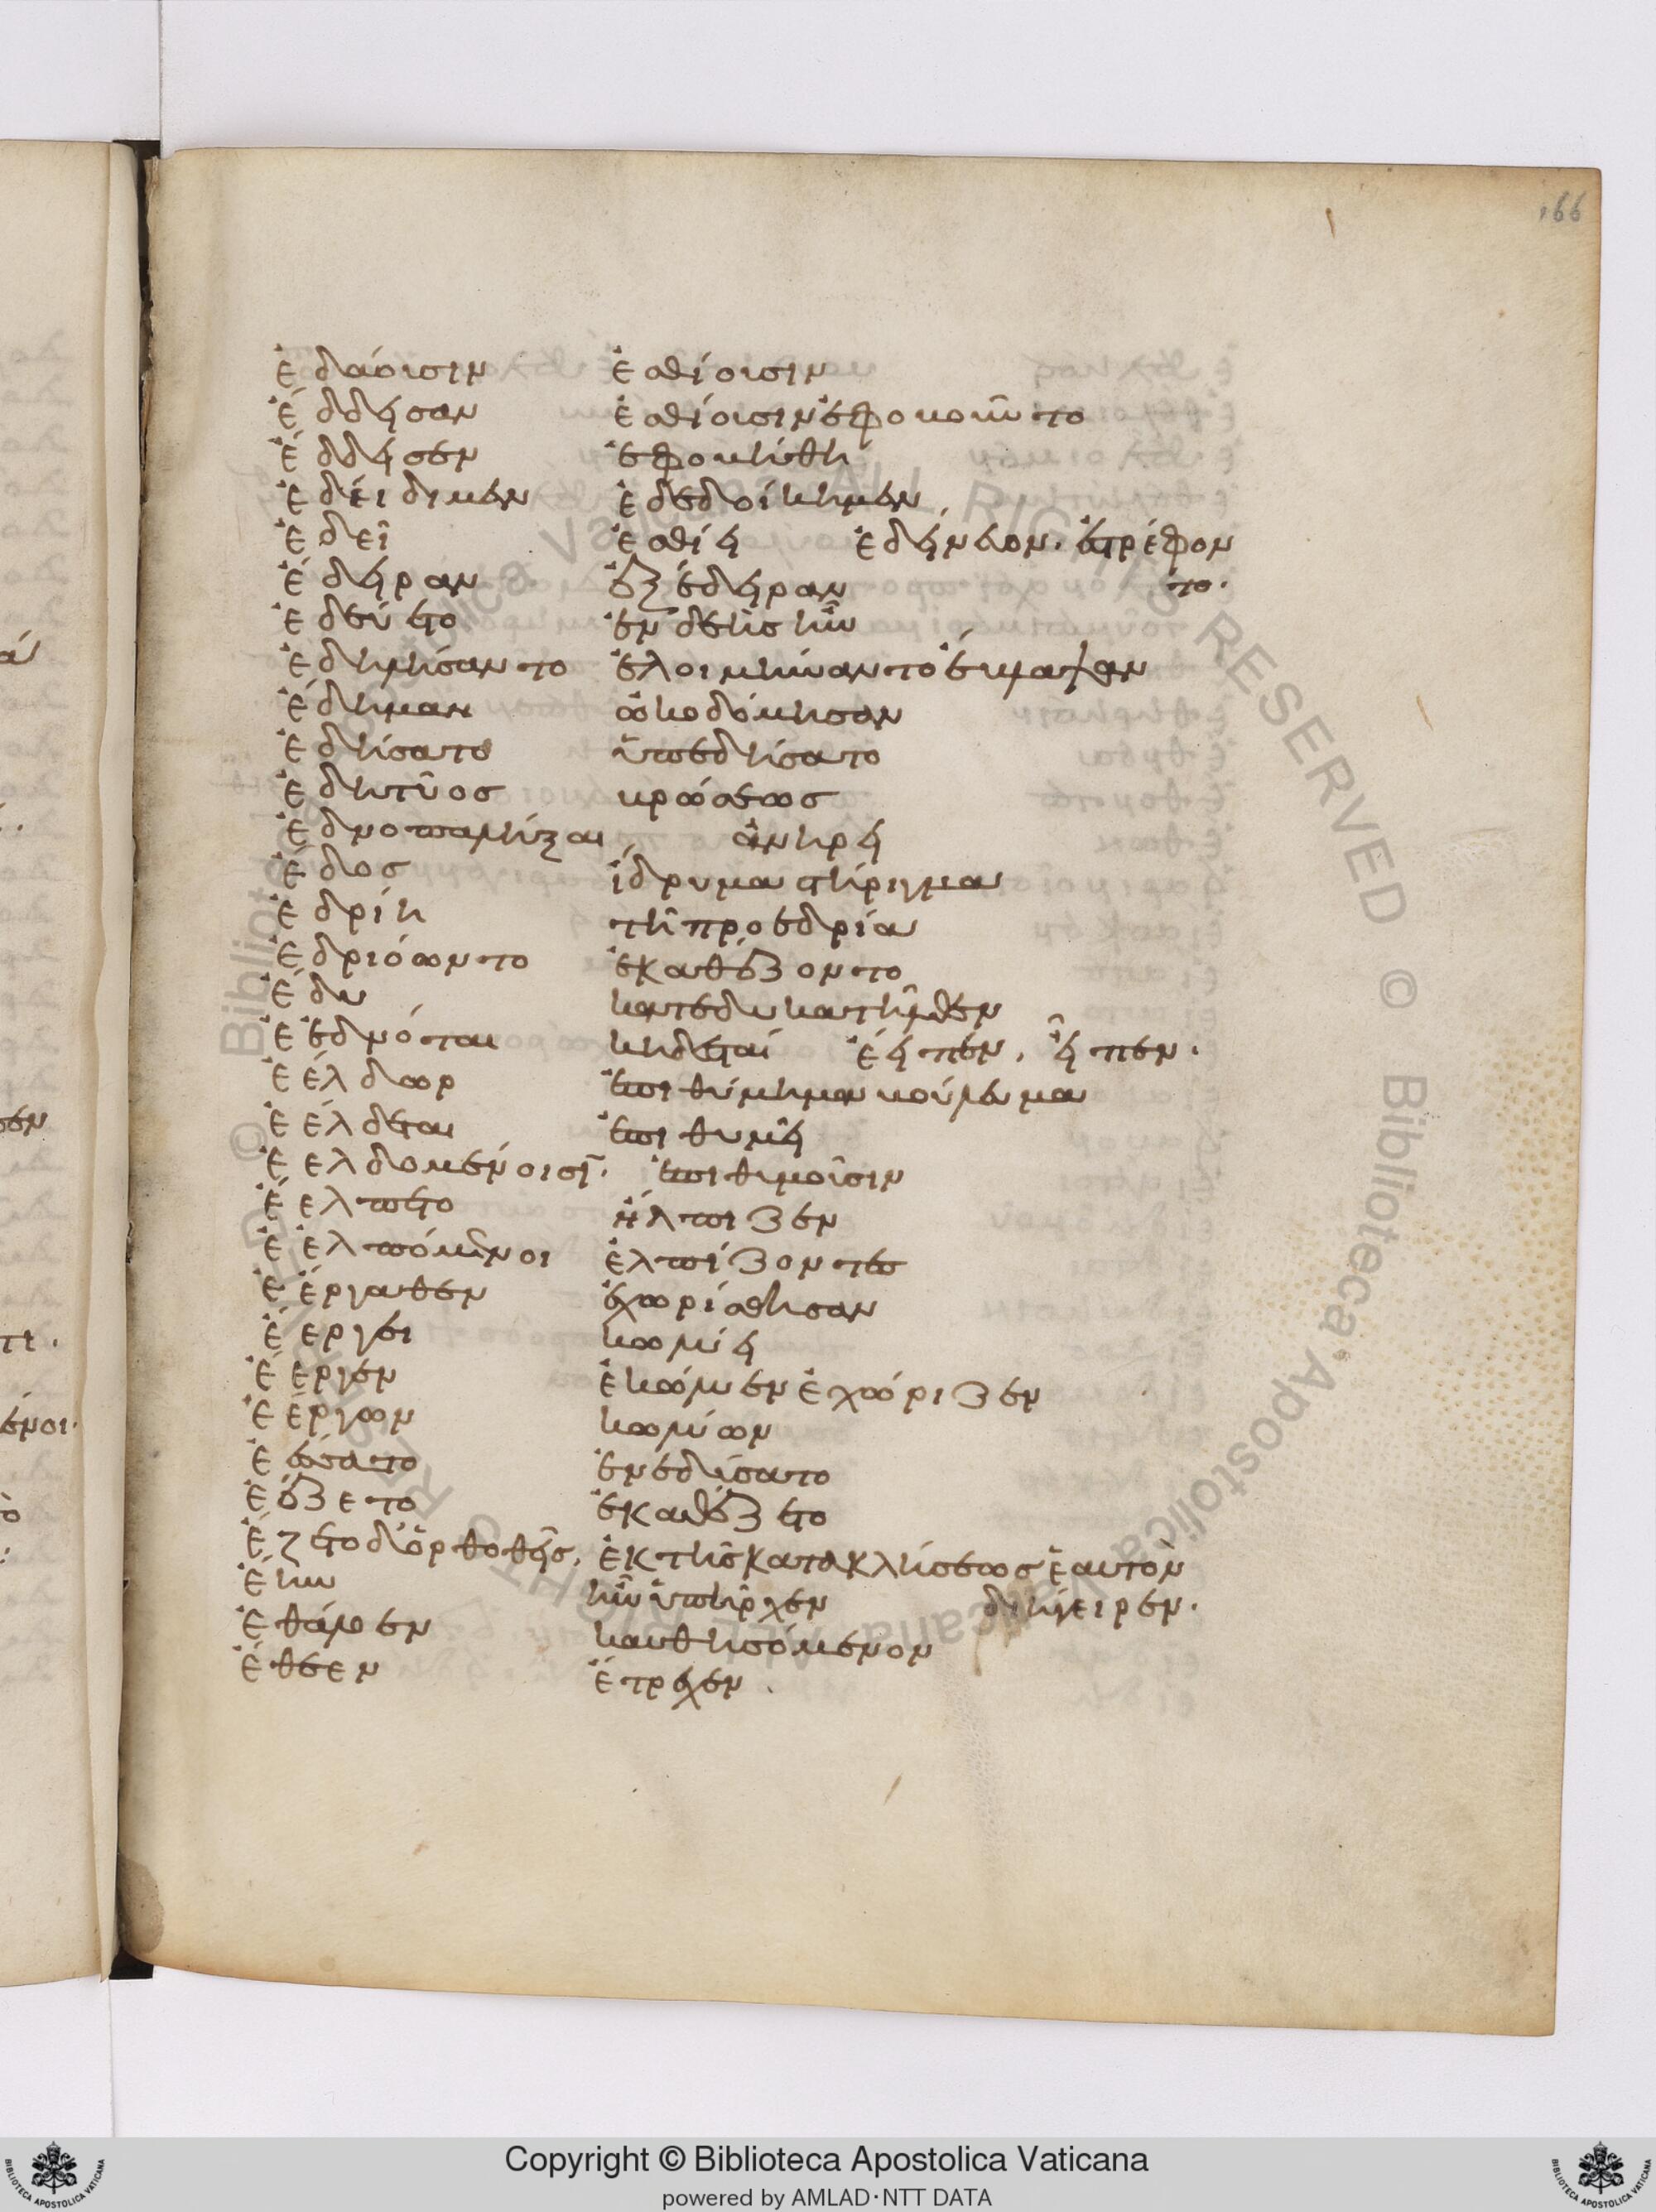 166
ἐδάουσιν ἐσθίουσιν
ἔδδησαν ἐσθίουσιν ἐφοβοῦντο
ἔδδησεν ἐφοβήθη
ἐδείδιμεν ἐδεδοίκημεν
ἐδεῖ ἐσθίει ἐδήνεον. ἔτρεφον
ἔδειραν ἐξέδειραν το.
ἐδεύετο ἐνδεὴς ἦν
ἐδηλήσαντο ἐλοιμήναντο ἔβλαψαν
ἔδημαν ὠκοδόμησαν
ἐδήσατο ὑπεδήσατο
ἐδητύος βρώσεως
ἐδνοπαλήξαι ἀνηρει
ἔδος ἵδρυμα στήριγμα
ἑδρίη τῆ προεδρία
ἑδριόωντο ἐκαθέζοντο
ἔδυ κατέδυ κατῆλθεν
ἐεδνόται κηδεταί ἐείπεν, εἶπεν.
ἐέλδωρ ἐπιθύμημα βούλευμα
ἐέλδεται ἐπιθυμεῖ
ἐελδομένοισι. ἐπιθυμοῦσιν
ἔελπετο ἤλπιζεν
ἐελπόμενοι ἐλπίζοντες
ἐέργαθεν ἐχωρίσθησαν
ἔεργει κωλύει
ἔεργεν ἐκώλυεν ἐχώριζεν
ἐέργων κωλύων
ἐέσατο ἐνεδύσατο
ἐέζετο ἐκαθέζετο
ἕζετο δ' ὀρθοθείς, ἐκ τῆς κατακλήσεως ἑαυτὸν
ἔην ἦν ὑπῆρχεν διήγειρεν.
ἐθάλεεν καυθησόμενον
ἔθεεν ἔτρεχεν.
Copyright © Biblioteca Apostolica Vaticana
powered by AMLAD·NTT DATA